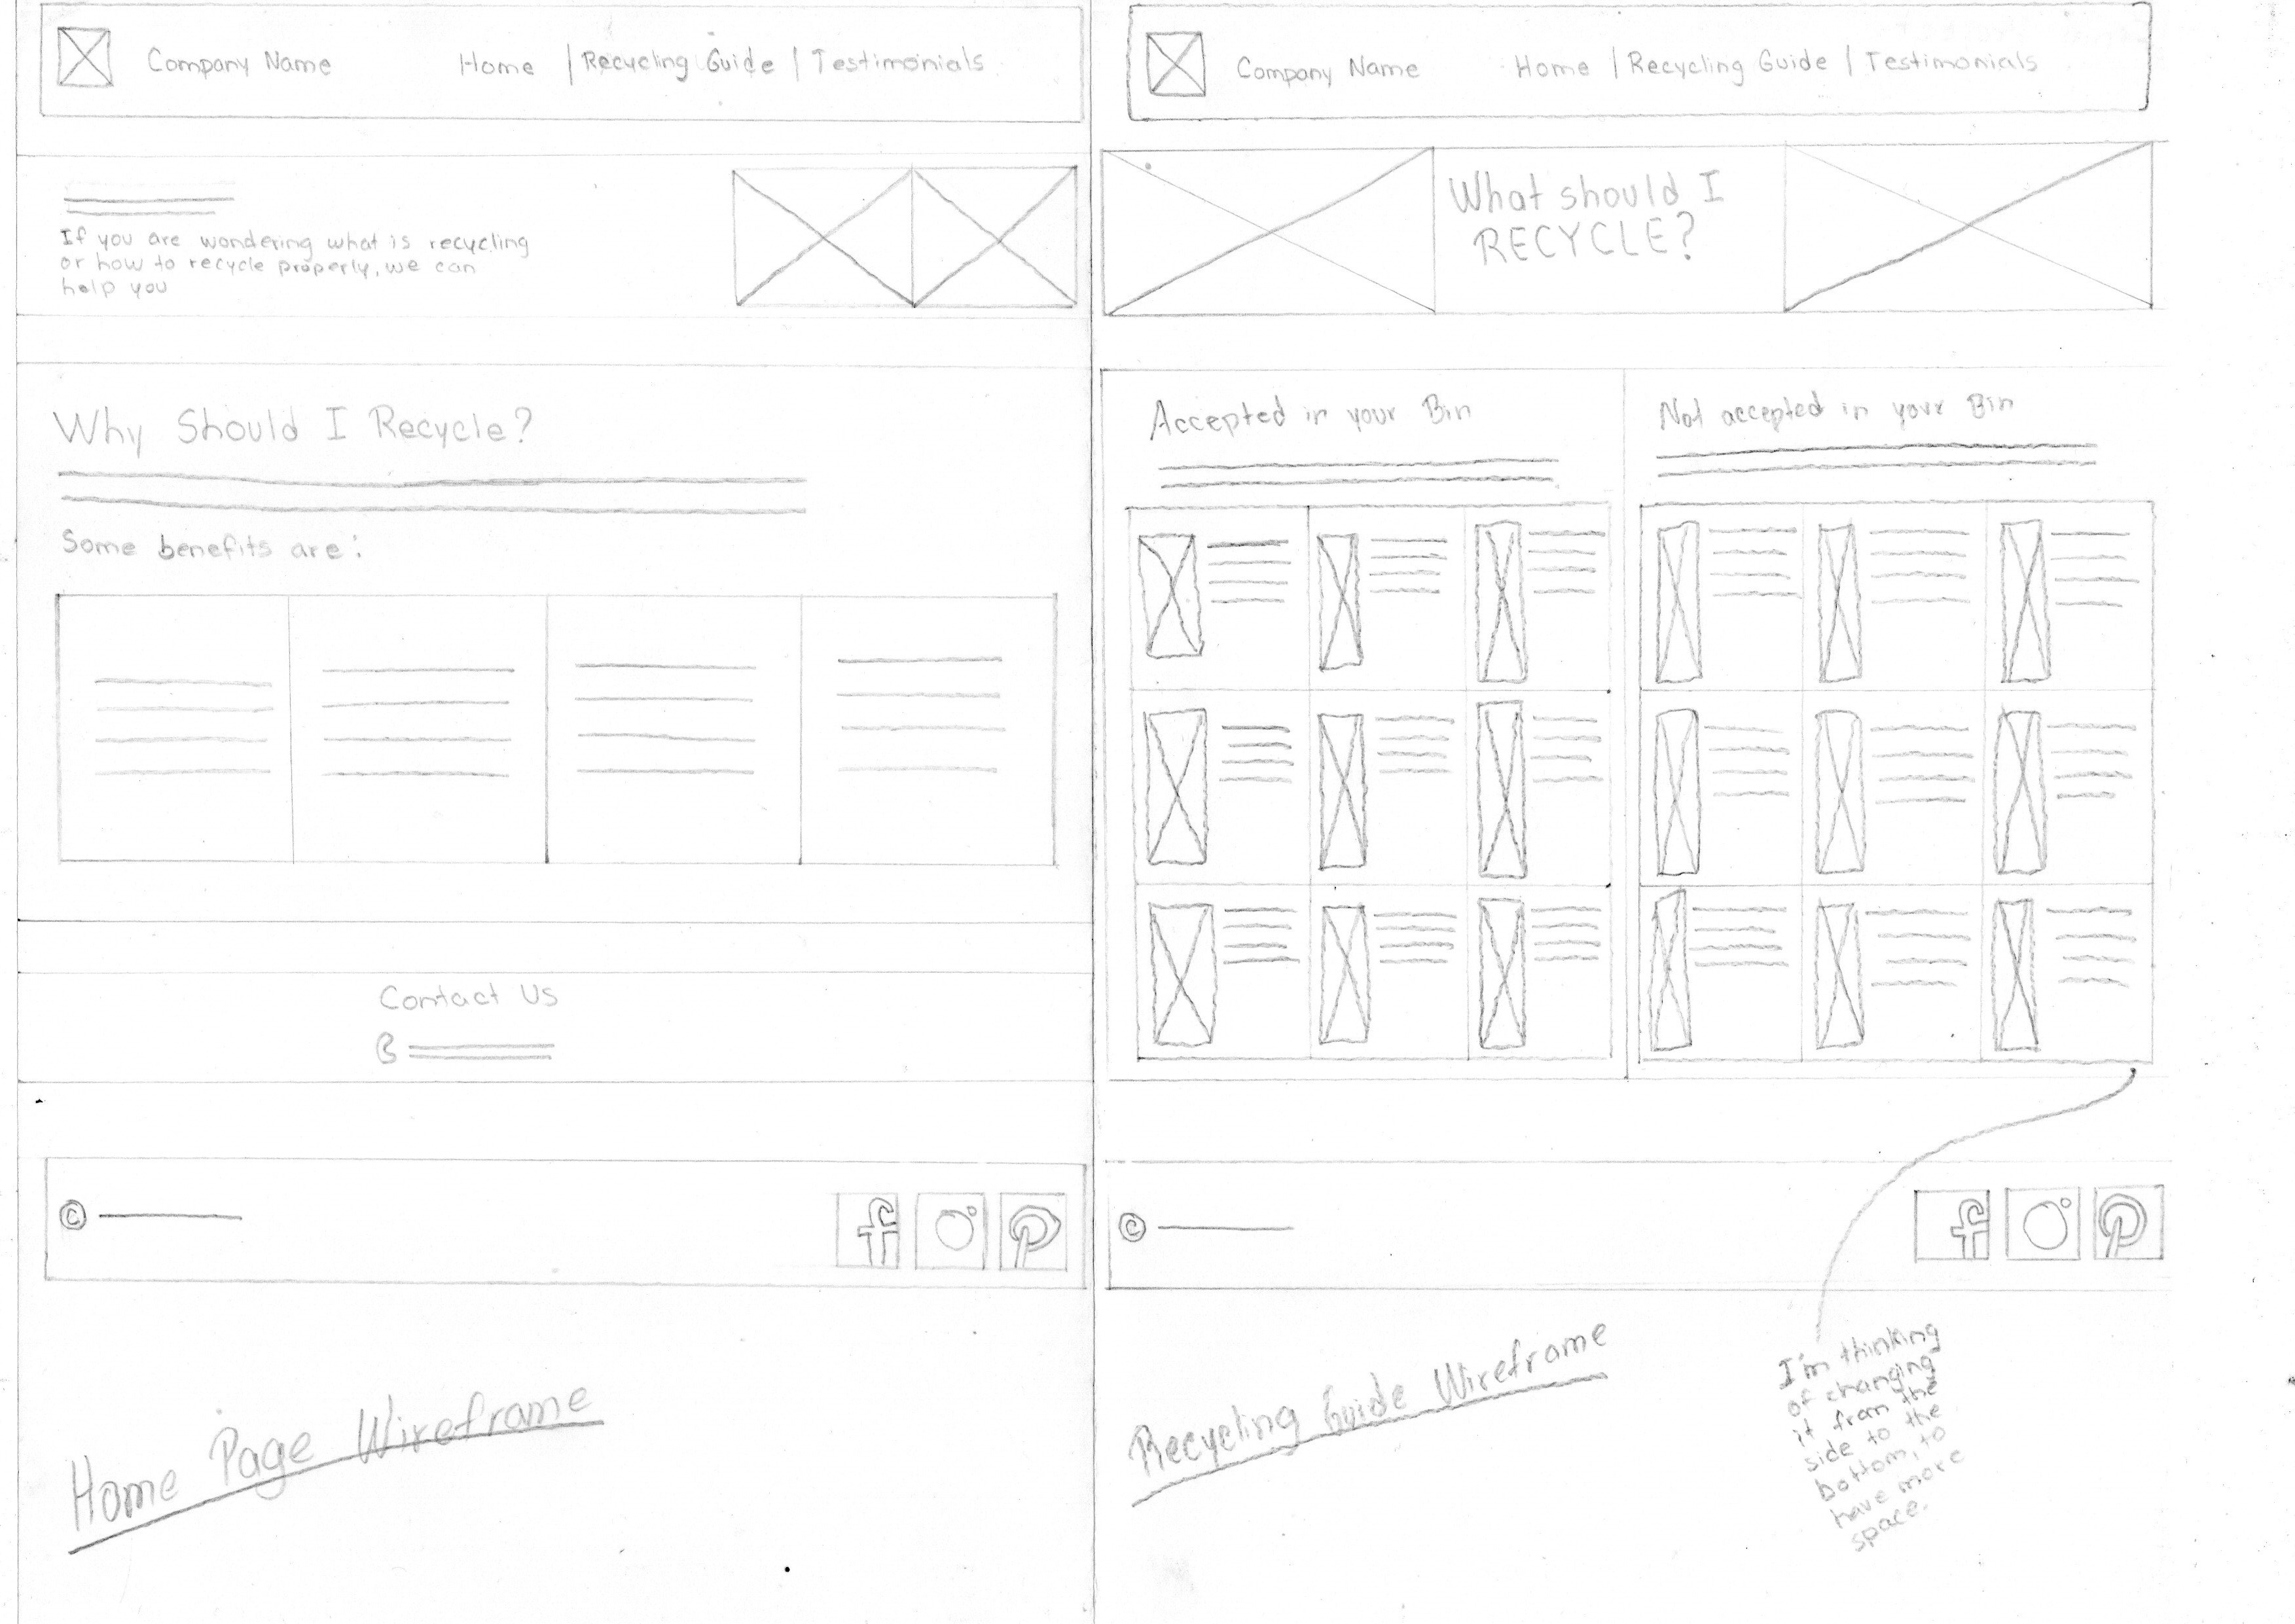 Company Name Home | Recycling Guide | Testimonials
If you are wondering what is recycling
or how to recycle properly, we can
help you
Why Should I Recycle?
Some benefits are:
Contact Us
©
Home Page Wireframe
Company Name Home | Recycling Guide | Testimonials
What should I
RECYCLE?
Accepted in your Bin
Not accepted in your Bin
©
Recycling Guide Wireframe
I'm thinking
of changing
it from the
side to the
bottom, to
have more
space.